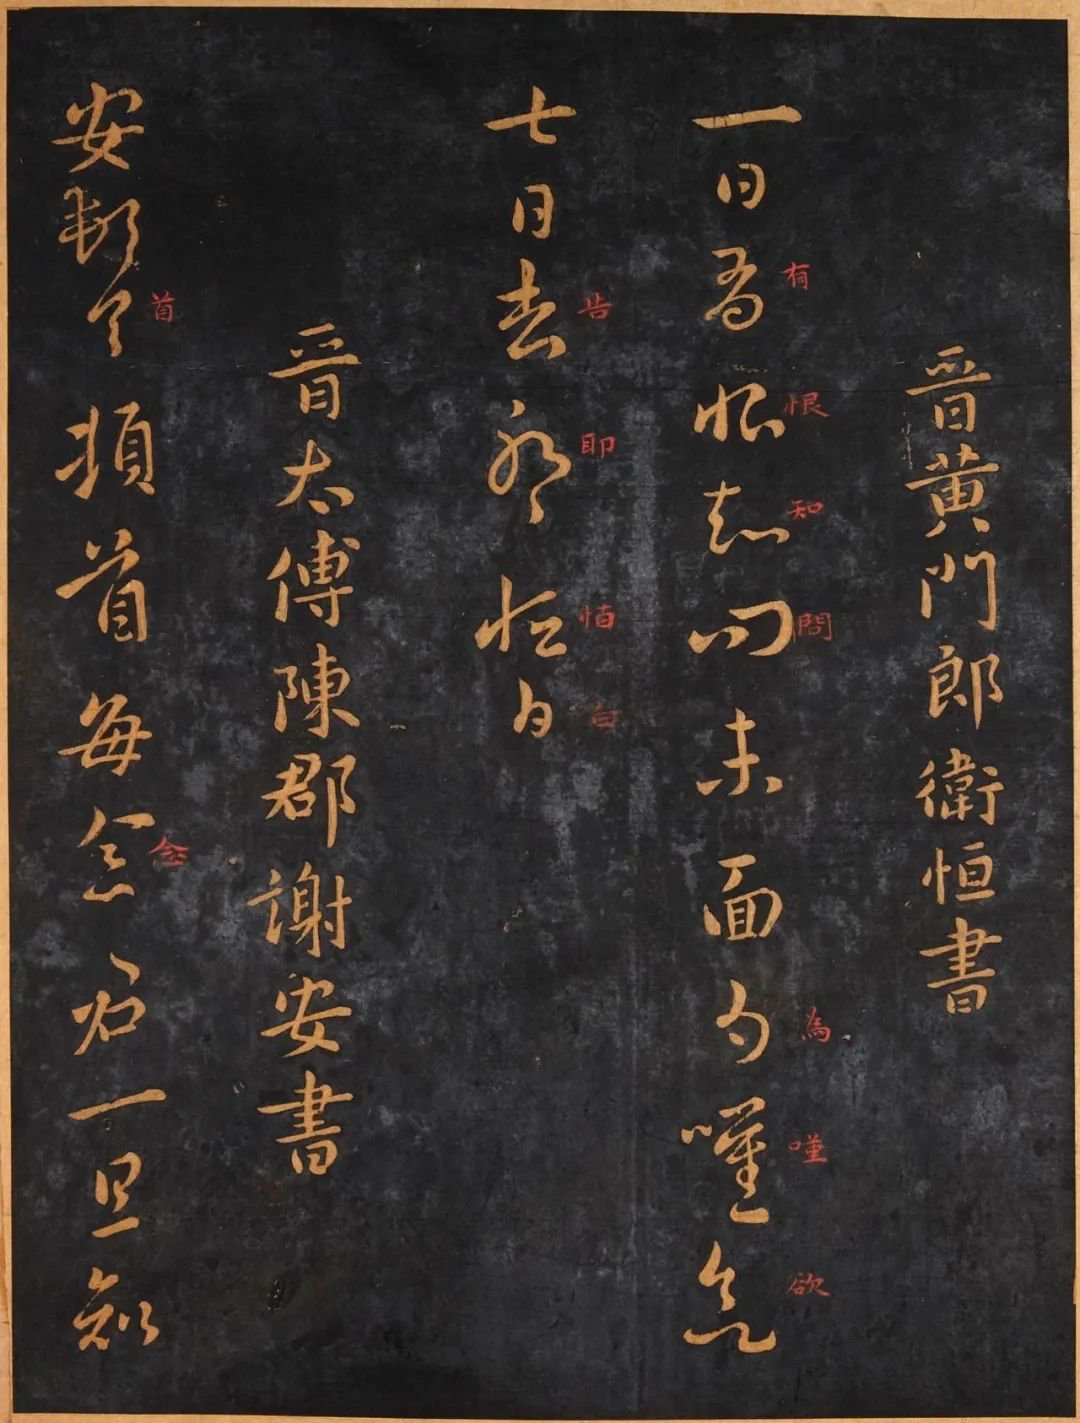 晉黃門郎衛恒書
一日有恨知問未面為嘆欲
有恨知問為嘆欲
七日告即恒白
告即恒白
晉太傅陳郡謝安書
安頓首頓首每念君一旦知
首念